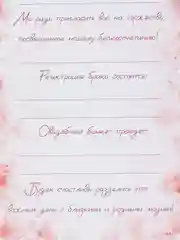 Мы рады пригласить вас на торжество,
посвященное нашему бракосочетанию!
Регистрация брака состоится:
Свадебный банкет пройдет:
Будем счастливы разделить этот
день с близкими и родными людьми!